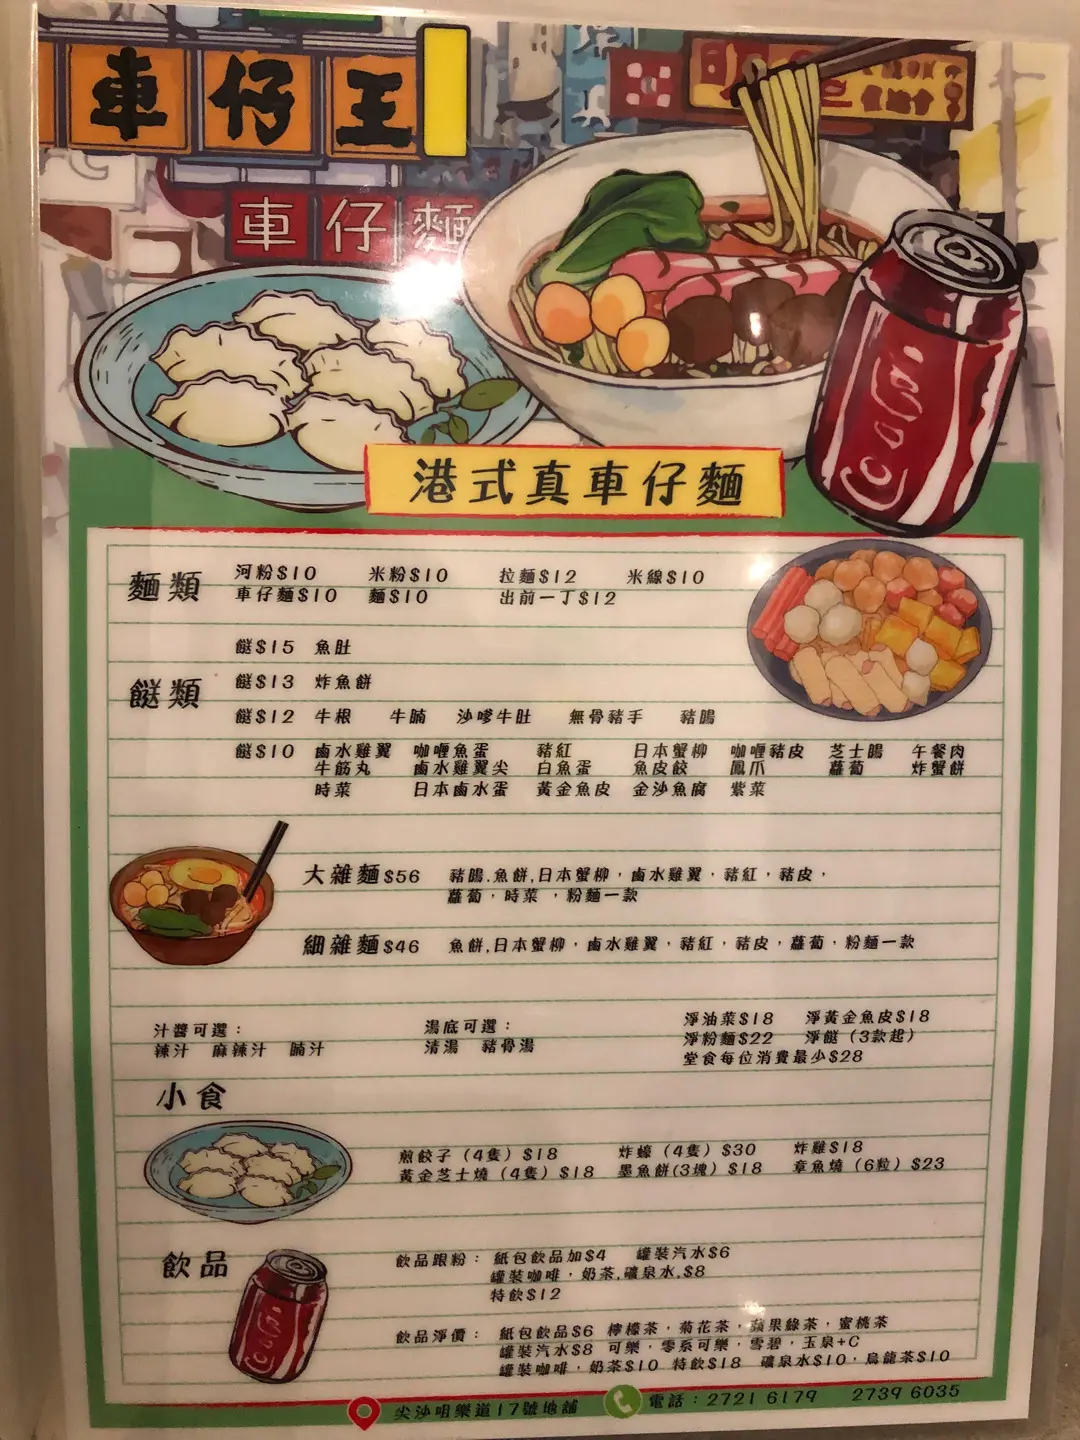 車仔王
車仔麵
港式真車仔麵
麵類
河粉$10 米粉$10 拉麵$12 米線$10
車仔麵$10 麵$10 出前一丁$12
餸類
餸$15 魚肚
餸$13 炸魚餅
餸$12 牛根 牛腩 沙嗲牛肚 無骨豬手 豬腸
餸$10 鹵水雞翼 咖喱魚蛋 豬紅 日本蟹柳 咖喱豬皮 芝士腸 午餐肉
牛筋丸 鹵水雞翼尖 白魚蛋 魚皮餃 鳳爪 蘿蔔 炸蟹餅
時菜 日本鹵水蛋 黃金魚皮 金沙魚腐 紫菜
大雜麵$56 豬腸.魚餅,日本蟹柳,鹵水雞翼,豬紅,豬皮,
蘿蔔,時菜,粉麵一款
細雜麵$46 魚餅,日本蟹柳,鹵水雞翼,豬紅,豬皮,蘿蔔,粉麵一款
汁醬可選：
辣汁 麻辣汁 腩汁
湯底可選：
清湯 豬骨湯
淨油菜$18 淨黃金魚皮$18
淨粉麵$22 淨餸（3款起）
堂食每位消費最少$28
小食
煎餃子（4隻）$18 炸蠔（4隻）$30 炸雞$18
黃金芝士燒（4隻）$18 墨魚餅(3塊）$18 章魚燒（6粒）$23
飲品
飲品跟粉：紙包飲品加$4 罐裝汽水$6
罐裝咖啡,奶茶,礦泉水,$8
特飲$12
飲品淨價：紙包飲品$6 檸檬茶,菊花茶,蘋果綠茶,蜜桃茶
罐裝汽水$8 可樂,零系可樂,雪碧,玉泉+C
罐裝咖啡,奶茶$10 特飲$18 礦泉水$10,烏龍茶$10
尖沙咀樂道17號地舖 電話：2721 6179 2739 6035